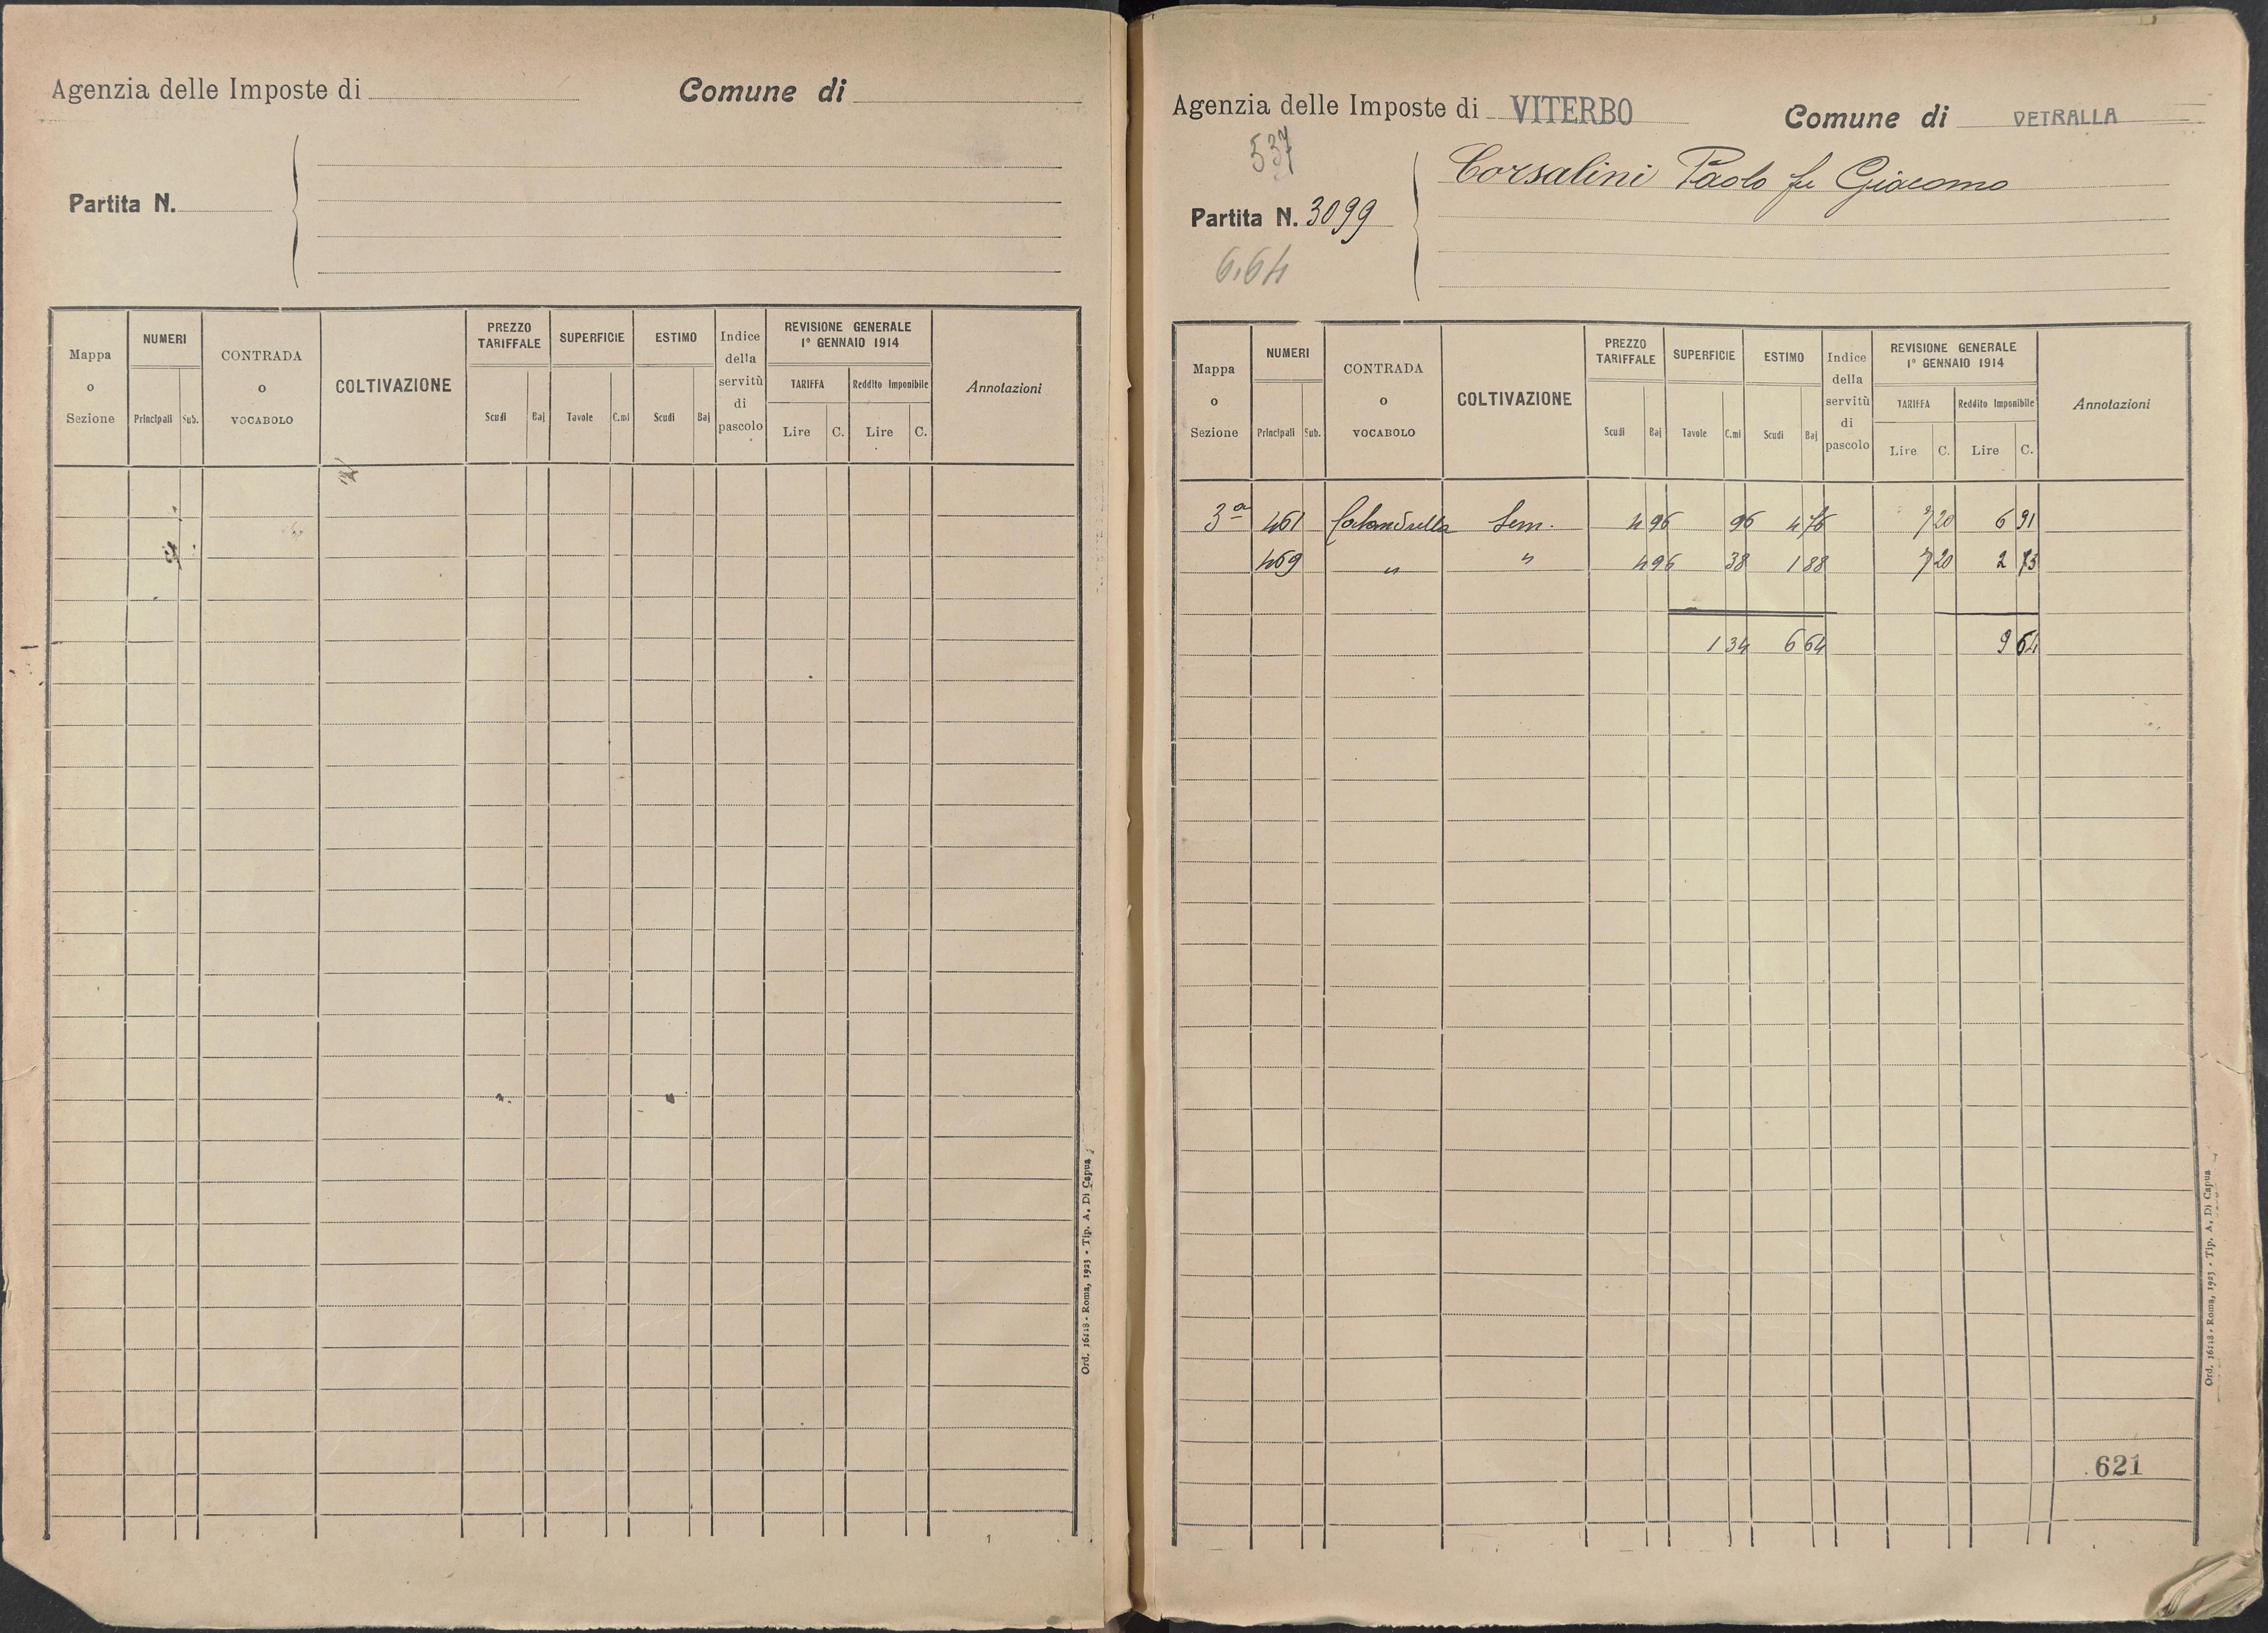 Agenzia delle Imposte di
Comune di
Partita N.
Mappa o Sezione
NUMERI
Principali Sub.
CONTRADA o VOCABOLO
COLTIVAZIONE
PREZZO TARIFFALE
Scudi Baj
SUPERFICIE
Tavole C.mi
ESTIMO
Scudi Baj
Indice della servitù di pascolo
REVISIONE GENERALE
1° GENNAIO 1914
TARIFFA
Lire C.
Reddito Imponibile
Lire C.
Annotazioni
Ord. 16118 - Roma, 1923 - Tip. A. Di Capua
1
Agenzia delle Imposte di VITERBO
Comune di VETRALLA
537
Corsalini Paolo fu Giacomo
Partita N. 3099
6,64
Mappa o Sezione
NUMERI
Principali Sub.
CONTRADA o VOCABOLO
COLTIVAZIONE
PREZZO TARIFFALE
Scudi Baj
SUPERFICIE
Tavole C.mi
ESTIMO
Scudi Baj
Indice della servitù di pascolo
REVISIONE GENERALE
1° GENNAIO 1914
TARIFFA
Lire C.
Reddito Imponibile
Lire C.
Annotazioni
3a 461 Calandrella Sem. 4 96 96 4 76 7 20 6 91
469 " " 4 96 38 1 88 7 20 2 73
1 34 6 64 9 64
621
Ord. 16118 - Roma, 1923 - Tip. A. Di Capua